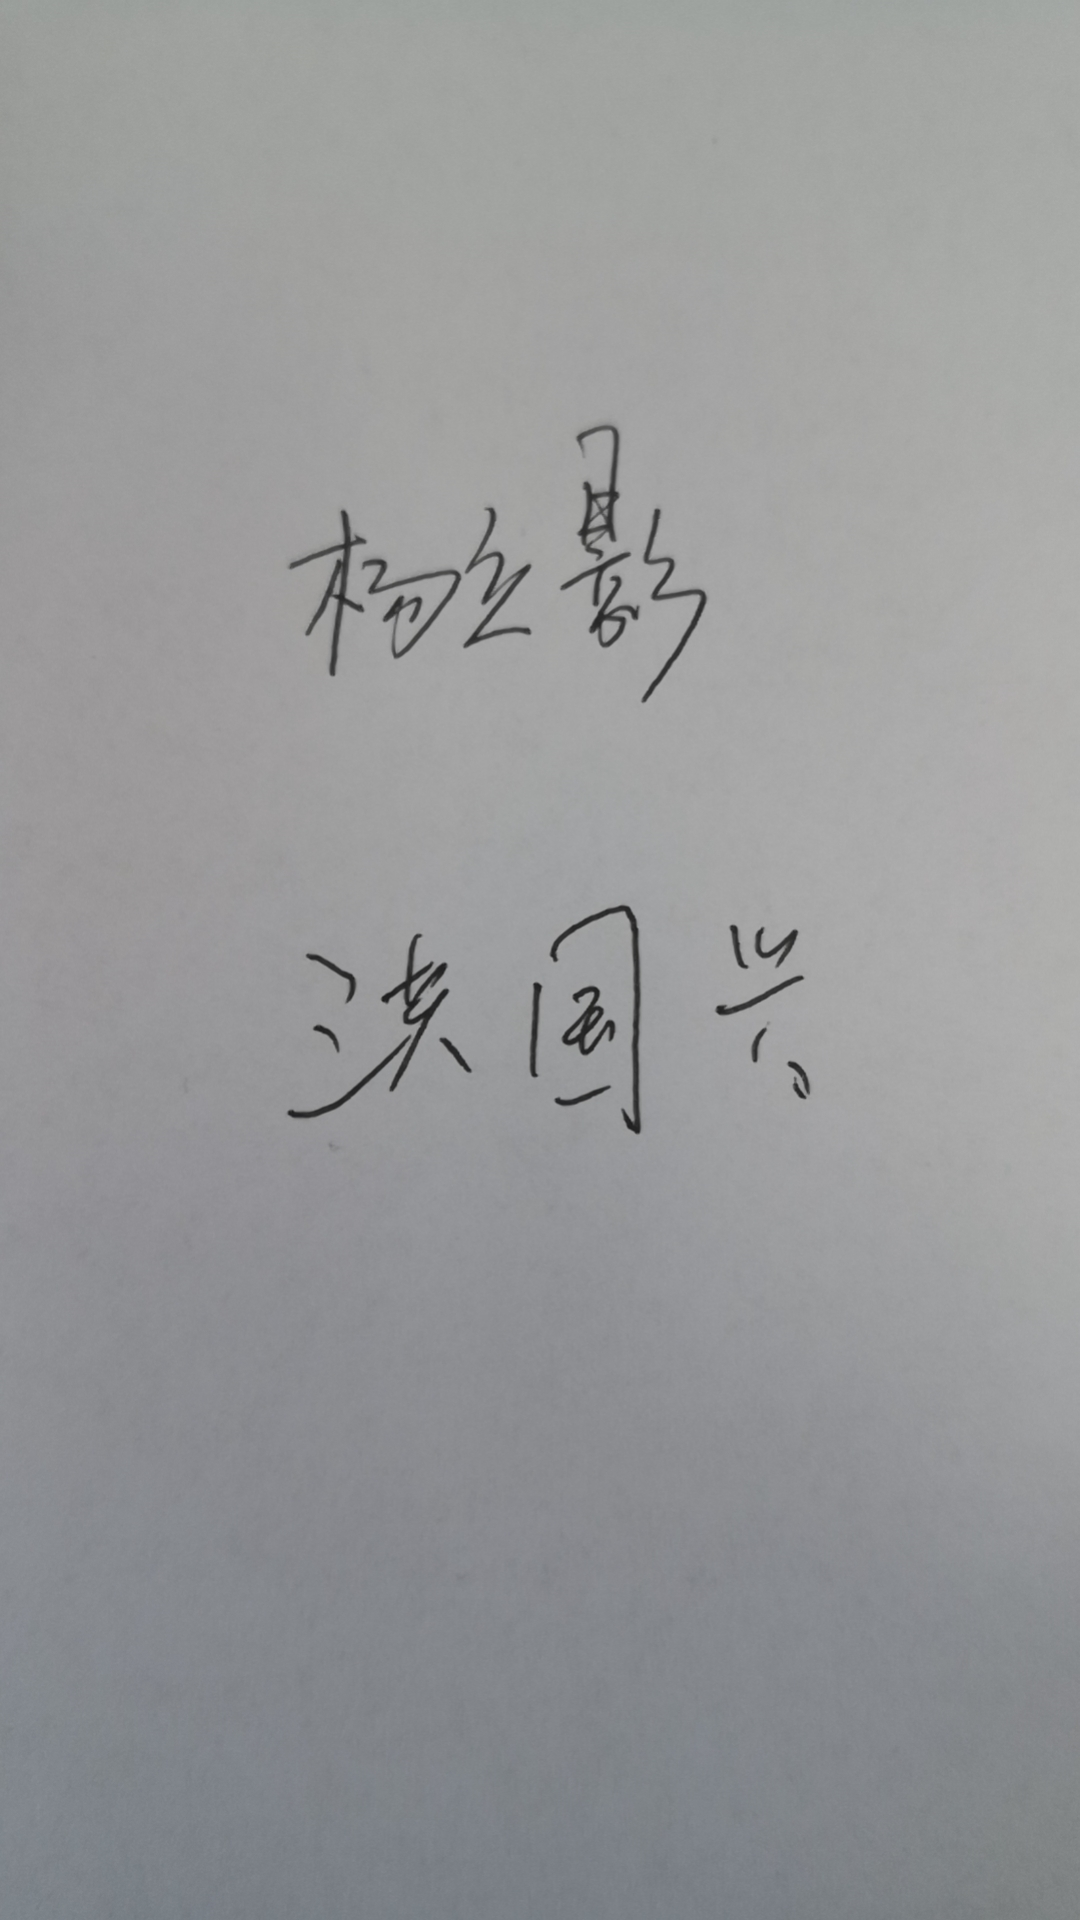 杨立影
洪国兴